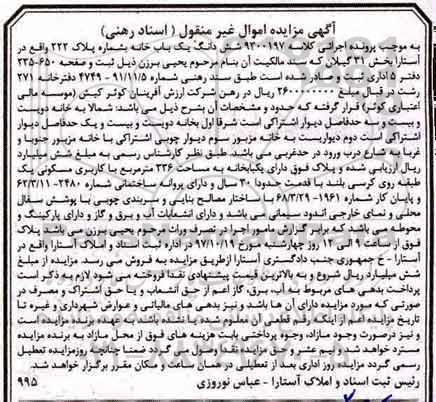 آگهی مزایده اموال غیر منقول ( اسناد رهنی)
به موجب پرونده اجرائی کلاسه ۹۳۰۰۱۹۷ شش دانگ یک باب خانه بشماره پلاک ۲۲۲ واقع در
آستارا بخش ۳۱ گیلان که سند مالکیت آن بنام مرحوم یحیی برزن ذیل ثبت و صفحه ۶۵۰-۲۳۵
دفتر ۵ اداری ثبت و صادر شده است طبق سند رهنی شماره ۹۱/۱۱/۵ - ۴۷۴۹ دفترخانه ۲۷۱
رشت در قبال مبلغ ۲۶۰۰۰۰۰۰۰ ریال در رهن شرکت ارزش آفرینان کوثر کیش (موسسه مالی
اعتباری کوثر) قرار گرفته که حدود و مشخصات آن بشرح ذیل می باشد: شمالا به خانه دویست
و بیست و به حدفاصل دیوار اشتراکی است شرقا اول بخانه دویست و بیست و یک حدفاصل دیوار
اشتراکی است دوم دیواریست به خانه مزبور سوم دیوار چوبی اشتراکی با خانه مزبور جنوبا و
غربا به شارع درب ورود در حدغربی می باشد. طبق نظر کارشناس رسمی به مبلغ شش میلیارد
ریال ارزیابی شده و پلاک فوق دارای یکبابخانه به مساحت ۲۳۶ مترمربع با کاربری مسکونی یک
طبقه روی کرسی بلند با قدمت حدودا ۳۰ سال و دارای پروانه ساختمانی شماره ۲۴۸۰- ۶۲/۳/۱۱
و پایان کار شماره ۱۹۶۱- ۶۸/۳/۲۹ ساختار مصالح بنایی و سربندی چوبی با پوشش سفال
محلی و نمای خارجی اندود سیمانی می باشد و دارای انشعابات آب و برق و گاز و دارای پارکینگ و
محوطه می باشد که برابر گزارش مامور اجرا در تصرف وراث مرحوم یحیی برزن می باشد پلاک
فوق از ساعت ۹ الی ۱۲ روز چهارشنبه مورخ ۹۷/۱۰/۱۹ در اداره ثبت اسناد و املاک آستارا واقع در
آستارا - خ جمهوری جنب دادگستری آستارا ازطریق مزایده به فروش می رسد. مزایده از مبلغ
شش میلیارد ریال شروع و به بالاترین قیمت پیشنهادی نقدا فروخته می شود لازم به ذکر است
پرداخت بدهی های مربوط به آب، برق، گاز اعم از حق انشعاب و یا حق اشتراک و مصرف در
صورتی که مورد مزایده دارای آن ها باشد و نیز بدهی های مالیاتی و عوارض شهرداری و غیره تا
تاریخ مزایده اعم از اینکه رقم قطعی آن معلوم شده یا نشده باشد به عهده برنده مزایده است
و نیز درصورت وجود مازاد، وجوه پرداختی بابت هزینه های فوق از محل مازاد به برنده مزایده
مسترد خواهد شد و نیم عشر و حق مزایده نقدا وصول می گردد ضمنا چنانچه روزمزایده تعطیل
رسمی گردد مزایده روز اداری بعد از تعطیلی در همان ساعت و مکان مقرر برگزار خواهد شد.
رئیس ثبت اسناد و املاک آستارا - عباس نوروزی ۹۹۵